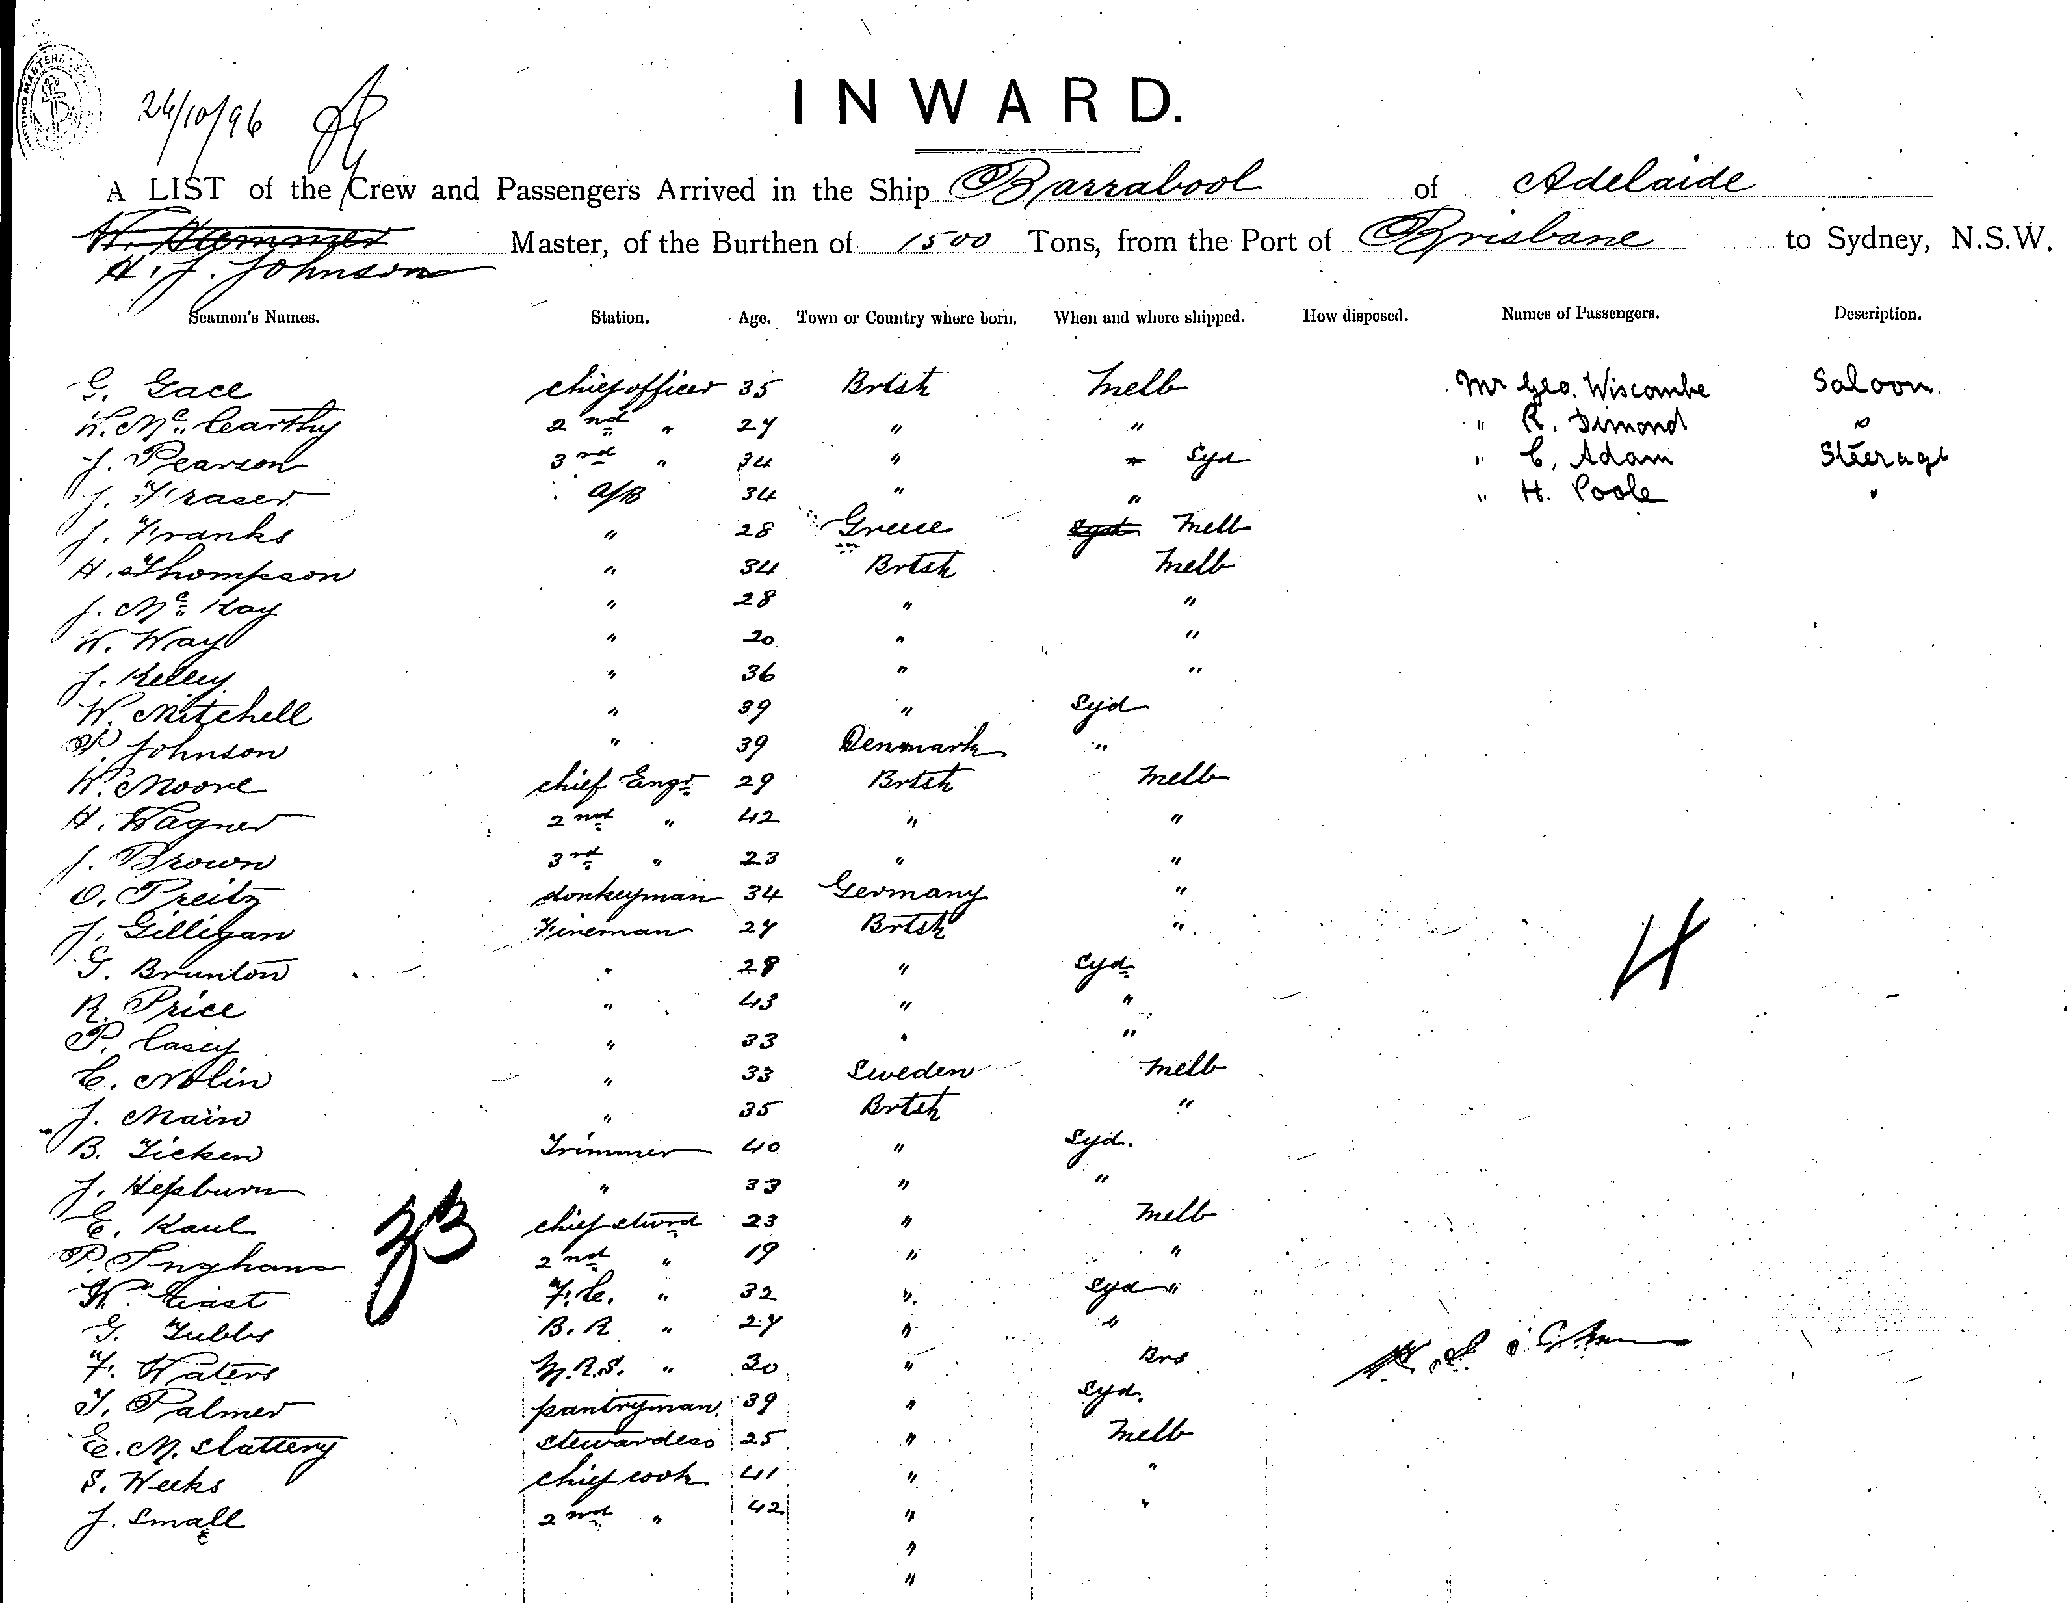 26/10/96
INWARD.
A LIST of the Crew and Passengers Arrived in the Ship Barrabool of Adelaide
Master, of the Burthen of 1500 Tons, from the Port of Brisbane to Sydney, N.S.W.
H. J. Johnson
Seamen's Names. Station. Age. Town or Country where born. When and where shipped. How disposed. Names of Passengers. Description.
G. Gace chief officer 35 Brtsh Melb Mr Geo. Wiscombe Saloon
W. Mc Carthy 2nd " 27 " " " R. Dimond "
J. Pearson 3rd " 34 " " Syd " C. Adam Steerage
J. Fraser A/B 34 " " " H. Poole "
J. Franks " 28 Greece Syd Melb
H. Thompson " 34 Brtsh Melb
J. Mc Kay " 28 " "
W. Way " 20 " "
J. Kelly " 36 " "
W. Mitchell " 39 " Syd
P. Johnson " 39 Denmark "
W. Moore chief Engr 29 Brtsh Melb
H. Wagner 2nd " 42 " "
J. Brown 3rd " 23 " "
O. Preitz donkeyman 34 Germany "
J. Gilligan Fireman 27 Brtsh "
G. Brunton " 28 " Syd
R. Price " 43 " "
P. Casey " 33 " "
C. Nolin " 33 Sweden Melb
J. Main " 35 Brtsh "
B. Ticken Trimmer 40 " Syd.
J. Hepburn " 33 " "
E. Kaul chief stwrd 23 " Melb
P. Ingham 2nd " 19 " "
W. East F.C. " 32 " Syd "
G. Tubbs B.R " 27 " "
F. Waters M.R.S. " 30 " Brs
T. Palmer pantryman 39 " Syd.
E. M. Slattery stewardess 25 " Melb
S. Weeks chief cook 41 " "
J. Small 2nd " 42 " "
"
"